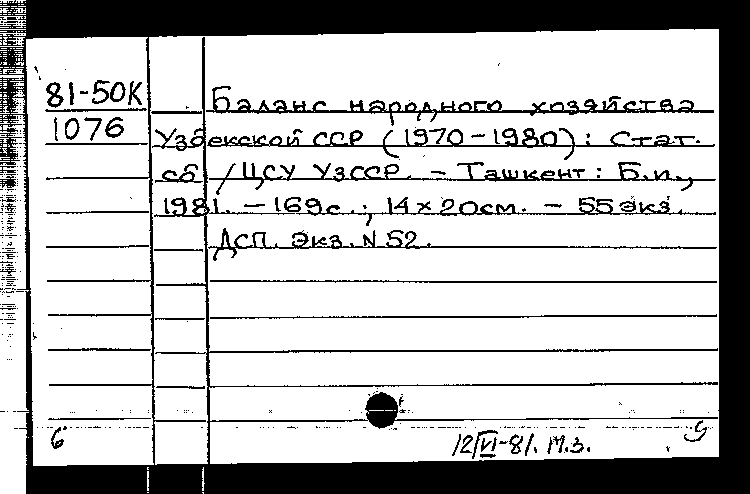 81-50К
1076
Баланс народного хозяйства
Узбекской ССР (1970-1980): Стат.
сб / ЦСУ УзССР. - Ташкент: Б.и.,
1981. - 169с.; 14×20см. - 55 экз.
Дсп. Экз. N 52.
6
12/VI-81. М.З.